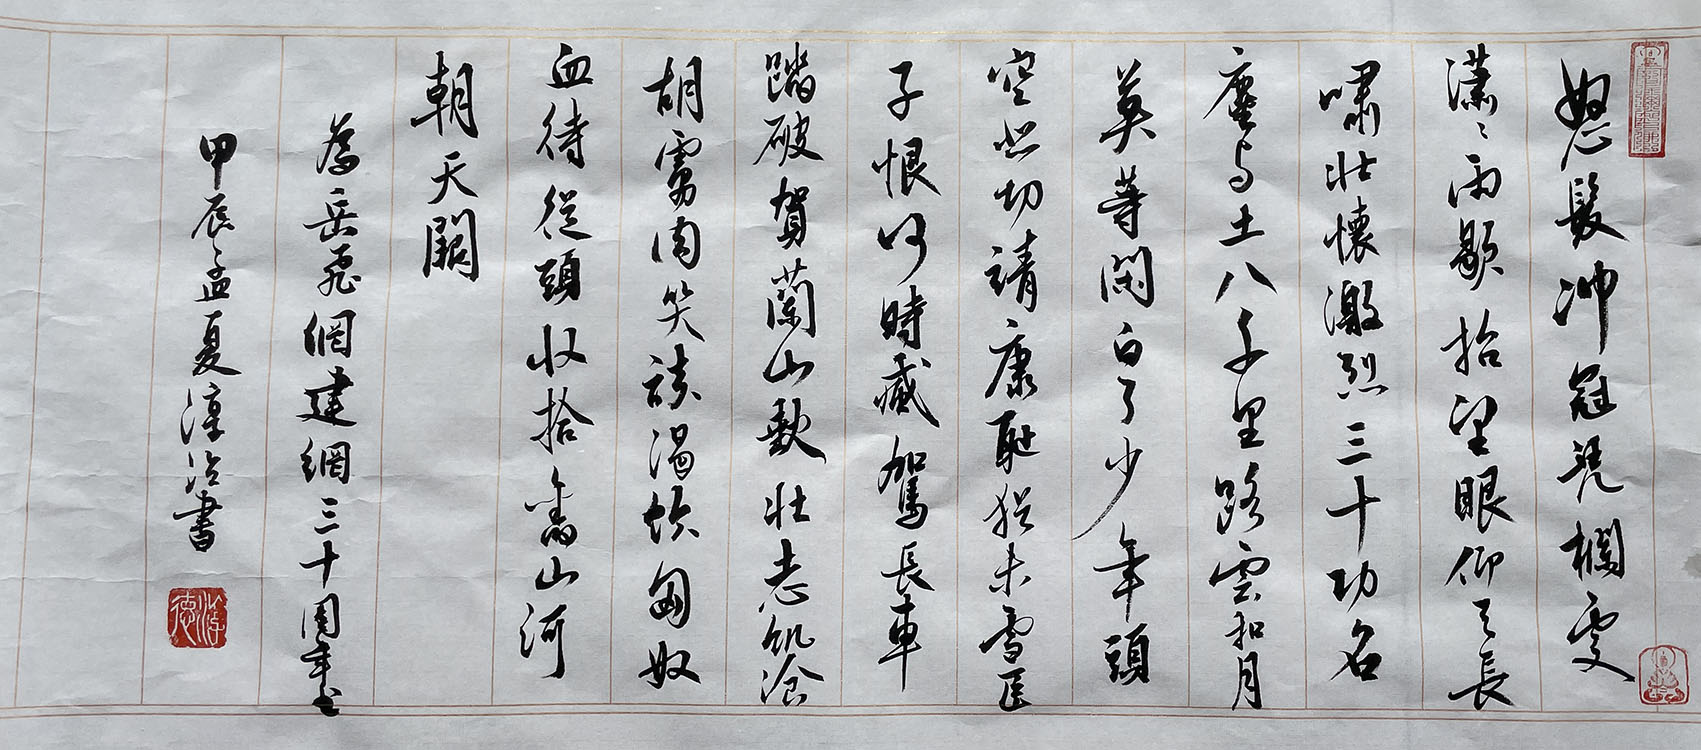 怒髮冲冠凭欄處
瀟〻雨歇抬望眼仰天長
嘯壯懷激烈三十功名
塵与土八千里路雲和月
莫等閑白了少年頭
空悲切靖康恥猶未雪臣
子恨何時滅駕長車
踏破賀蘭山缺壯志飢飡
胡虜肉笑談渴飲匈奴
血待從頭收拾舊山河
朝天闕
為岳飛網建網三十周年
甲辰孟夏淳治書